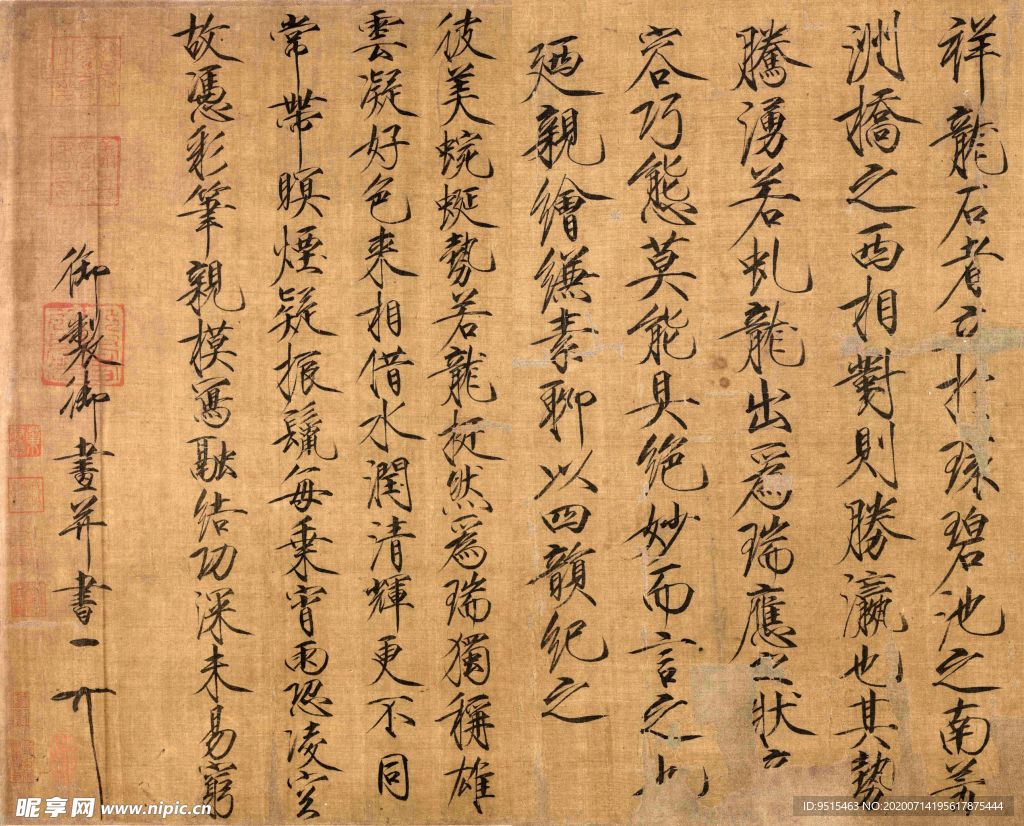 祥龍石者立於環碧池之南芳
洲橋之西相對則勝瀛也其勢
騰湧若虬龍出爲瑞應之狀奇
容巧態莫能具絕妙而言之也
廼親繪縑素聊以四韻紀之
彼美蜿蜒勢若龍挺然爲瑞獨稱雄
雲凝好色來相借水潤清輝更不同
常帶暝煙疑振鬣每乘宵雨恐凌空
故憑彩筆親模寫融結功深未易窮
御製御畫并書
昵享网 www.nipic.cn
ID:9515463 NO:20200714195617875444